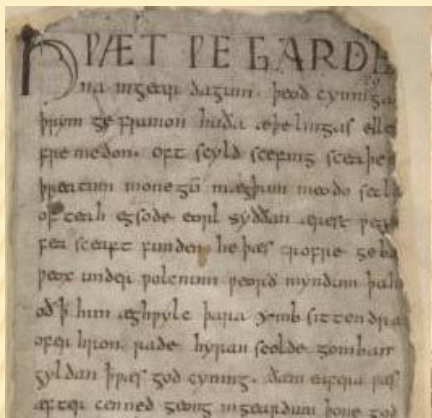 HǷÆT ǷE GARDE
na ingear dagum. þeod cyninga
þrym ge frunon huða æþelingas elle
fre medon. oft scyld scefing sceaþe
þreatum monegū mægþum meodo setla
of teah egsode eorl syððan ærest ƿear
fea sceaft funden he þæs frofre geba
ƿeox under ƿolcnum ƿeorð myndum þah
oð þ him æghƿylc þara ymb sittendra
ofer hron rade hyran scolde gomban
gyldan þæs god cyning. ðam eafera ƿæs
æfter cenned geong in geardum þone god